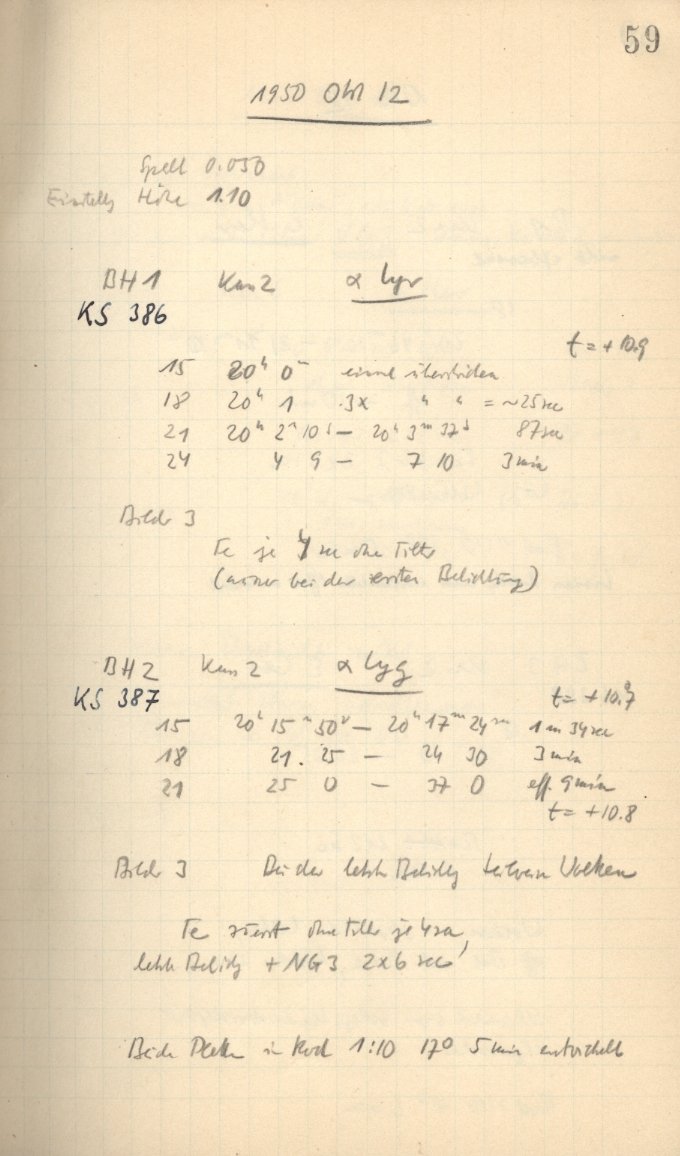 59
1950 Okt 12
Spalt 0.050
Einstellg Höhe 1.10
BH 1 Kass 2 α lyr
KS 386
t = + 10.9
15 20ʰ 0ᵐ einmal überstrichen
18 20ʰ 1 3x " " = ~25 sec
21 20ʰ 2ᵐ 10ˢ — 20ʰ 3ᵐ 37ˢ 87 sec
24 4 9 — 7 10 3 min
Bilder 3
Fe je 4 sec ohne Filter
(ausser bei der ersten Belichtung)
BH 2 Kass 2 α Cyg
KS 387
t = + 10.7
15 20ʰ 15ᵐ 50ˢ — 20ʰ 17ᵐ 24 1 m 34 sec
18 21. 25 — 24 30 3 min
21 25 0 — 37 0 eff. 9 min
t = + 10.8
Bilder 3 Bei der letzten Belichtg teilweise Wolken
Fe zuerst ohne Filter je 4 sec,
letzte Belichtg + NG 3 2 x 6 sec
Beide Platten in Rod 1:10 17° 5 min entwickelt